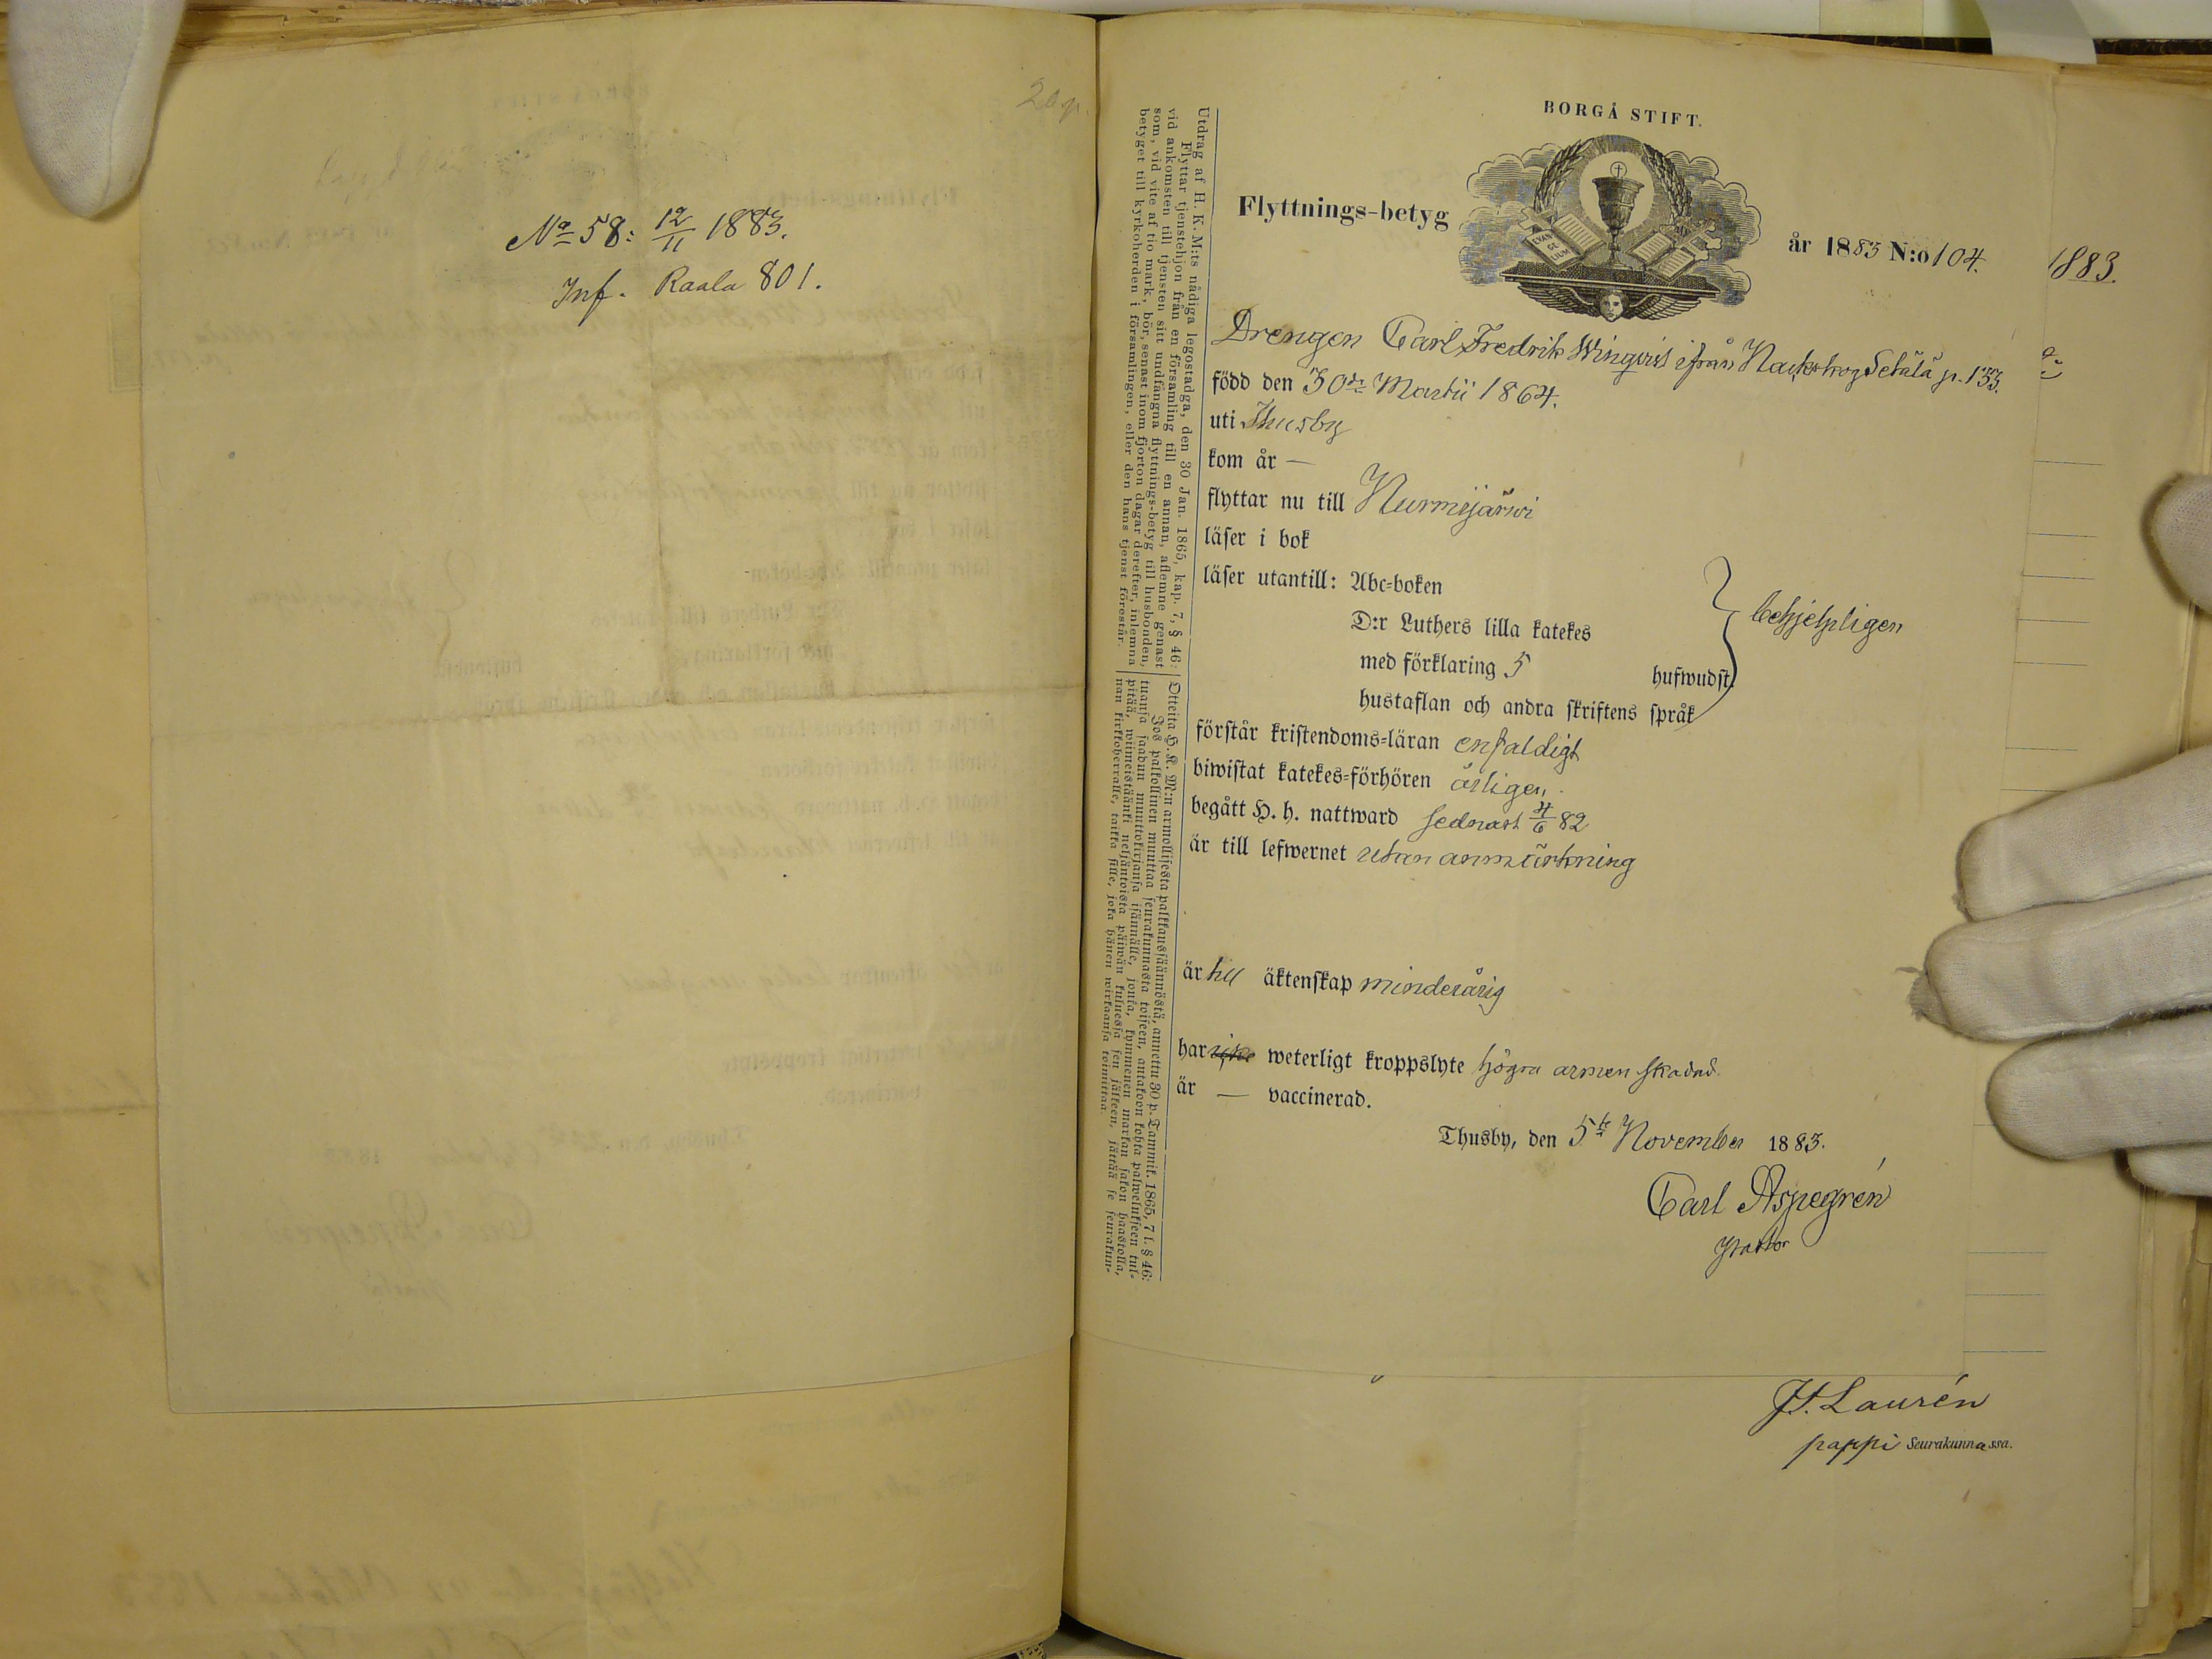 20 p.
No 58: 12/11 1883.
Inf. Raala 801.
BORGÅ STIFT.
Flyttnings-betyg
EVAN
GE
LIUM
år 1883 N:o 104.
Drengen Carl Fredrik Winqvist ifrån Nackskog Setälä p. 133.
född den 30de Martii 1864.
uti Thusby
kom år —
flyttar nu till Nurmijärwi
läser i bok
läser utantill: Abc-boken
D:r Luthers lilla katekes
med förklaring 5 hufwudst.
hustaflan och andra skriftens språk
behjelpligen
förstår kristendoms-läran enfaldigt
biwistat katekes-förhören årligen.
begått H. h. nattward sednast 4/6 82
är till lefwernet utan anmärkning
är till äktenskap minderårig
har icke weterligt kroppslyte högra armen skadad.
är — vaccinerad.
Thusby, den 5te November 1883.
Carl Aspegrén
Pastor
Utdrag af H. K. M:ts nådiga legostadga, den 30 Jan. 1865, kap. 7, § 46:
Flyttar tjenstehjon från en församling till en annan, aflemne genast
vid ankomsten till tjensten sitt undfångna flyttnings-betyg till husbonden,
som, vid vite af tio mark, bör, senast inom fjorton dagar derefter, inlemna
betyget till kyrkoherden i församlingen, eller den hans tjenst förestår.
Otteita H. K. M:n armollisesta palkkaussäännöstä, annettu 30 p. Tammik. 1865, 7 l. § 46:
Jos palkollinen muuttaa seurakunnasta toiseen, antakoon kohta palwelukseen tul-
tuansa saadun muuttokirjansa isännälle, jonka, kymmenen markan sakon haastolla,
pitää, wiimeistäänki neljäntoista päiwän kuluessa sen jälkeen, jättää se seurakun-
nan kirkkoherralle, taikka sille, joka hänen wirkaansa toimittaa.
1883.
H. Laurén
pappi Seurakunnassa.